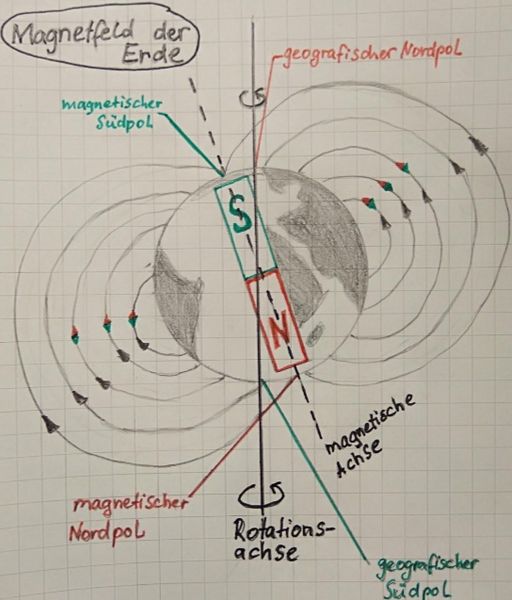 Magnetfeld der
Erde
geografischer Nordpol
magnetischer
Südpol
S
N
magnetische
Achse
magnetischer
Nordpol
Rotations-
achse
geografischer
Südpol